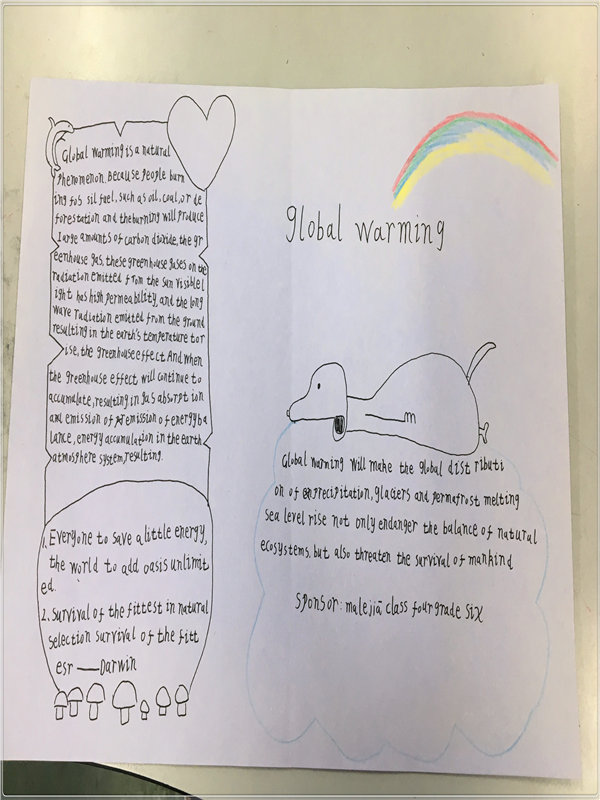 Global Warming is a natural
phenomenon. Because people burn
ing fos sil fuel, such as oil, coal, or de
forestation and the burning will produce
large amounts of carbon dioxide, the gr
eenhouse gas, these greenhouse gases on the
radiation emitted from the sun visible l
ight has high permeability, and the long
wave radiation emitted from the ground
resulting in the earth's temperature to r
ise, the greenhouse effect. And when
the greenhouse effect will continue to
accumulate, resulting in gas absorpt ion
and emission of emission of energy ba
lance, energy accumulation in the earth
atmosphere system, resulting.
1. Everyone to save a little energy,
the world to add oasis unlimit
ed.
2. survival of the fittest in natural
selection survival of the fitt
esr — Darwin
global warming
m
Global warming will make the global dist ributi
on of precipitation, glaciers and permafrost melting
sea level rise not only endanger the balance of natural
ecosystems, but also threaten the survival of mankind
Sponsor: malejiā class four grade six